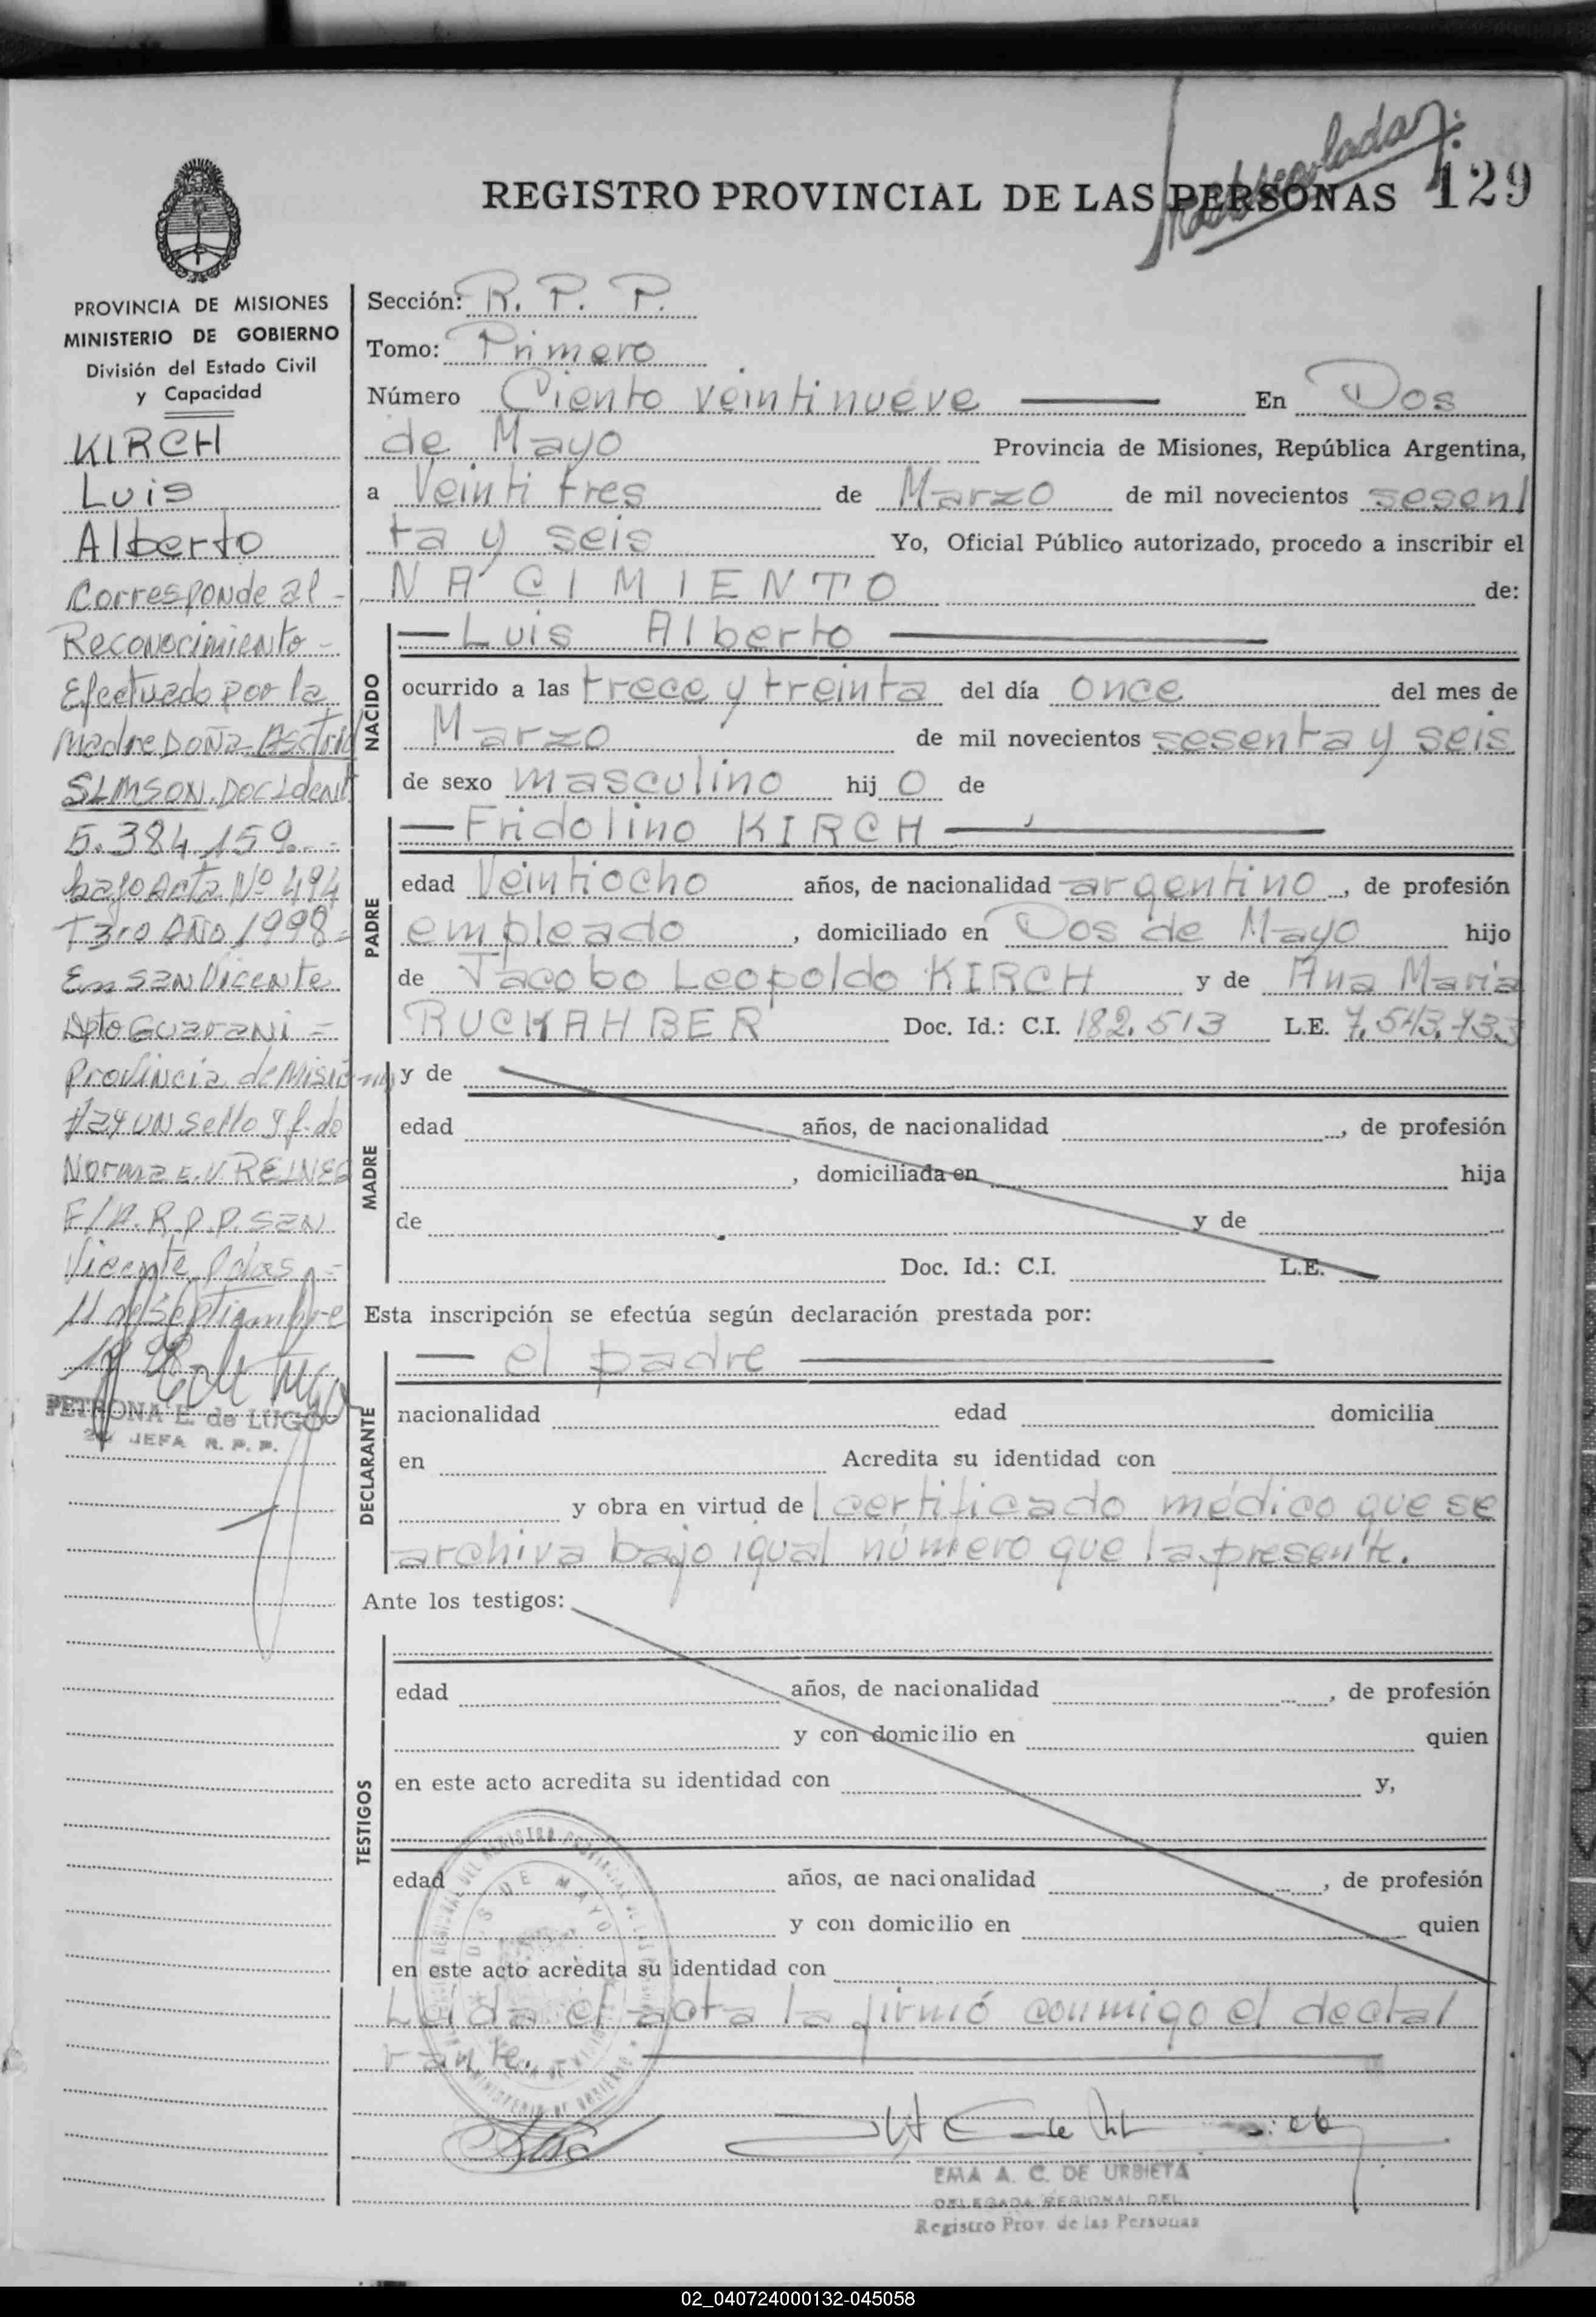 REGISTRO PROVINCIAL DE LAS PERSONAS 129
PROVINCIA DE MISIONES
MINISTERIO DE GOBIERNO
División del Estado Civil
y Capacidad
KIRCH
Luis
Alberto
Corresponde al -
Reconocimiento -
Efectuado por la
Madre DOÑA Astrid
SIMSON. Doc Ident
5.384.159.-
bajo Acta Nº 494
T 3ro Año 1998 -
En San Vicente
Dpto Guarani =
Provincia de Misiones
Hay un sello y f. do
Norma E. V. REINER
E/A. R.P.P. San
Vicente Pdas =
11 de Septiembre
1998
PETRONA E. de LUGO
JEFA R. P. P.
Sección: R. P. P.
Tomo: Primero
Número Ciento veintinueve En Dos
de Mayo Provincia de Misiones, República Argentina,
a Veinti tres de Marzo de mil novecientos sesen/
ta y seis Yo, Oficial Público autorizado, procedo a inscribir el
NACIMIENTO de:
NACIDO
— Luis Alberto —
ocurrido a las trece y treinta del día once del mes de
Marzo de mil novecientos sesenta y seis
de sexo masculino hij o de
PADRE
— Fridolino KIRCH —
edad Veintiocho años, de nacionalidad argentino, de profesión
empleado, domiciliado en Dos de Mayo hijo
de Jacobo Leopoldo KIRCH y de Ana María
RUCKAHBER Doc. Id.: C.I. 182.513 L.E. 7.543.933
MADRE
y de
edad años, de nacionalidad , de profesión
, domiciliada en hija
de y de
Doc. Id.: C.I. L.E.
Esta inscripción se efectúa según declaración prestada por:
DECLARANTE
— el padre —
nacionalidad edad domicilia
en Acredita su identidad con
y obra en virtud de l certificado médico que se
archiva bajo igual número que la presente.
Ante los testigos:
TESTIGOS
edad años, de nacionalidad , de profesión
y con domicilio en quien
en este acto acredita su identidad con y,
edad años, de nacionalidad , de profesión
y con domicilio en quien
en este acto acredita su identidad con
Leída el acta la firmó conmigo el decla/
rante.
DOS DE MAYO
EMA A. C. DE URBIETA
DELEGADA REGIONAL DEL
Registro Prov. de las Personas
02_040724000132-045058